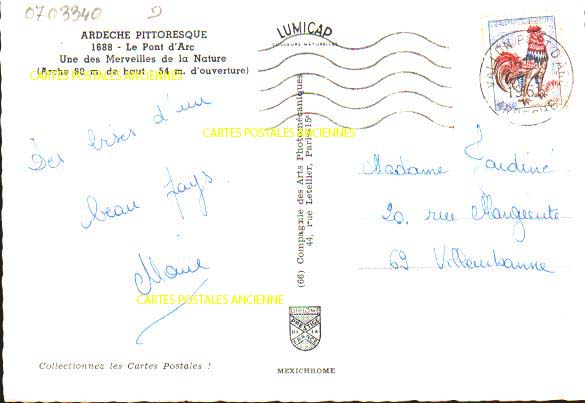 0703340
ARDECHE PITTORESQUE
1688 - Le Pont d'Arc
Une des Merveilles de la Nature
(Arche 80 m. de haut - 54 m. d'ouverture)
CARTES POSTALES ANCIENNES
LUMICAP
COULEURS NATURELLES
1963
ARDECHE
CARTES POSTALES ANCIENNES
Des bises d'un
beau pays.
Marie
CARTES POSTALES ANCIENNE
(66) Compagnie des Arts Photomécaniques
44, rue Letellier, Paris-15e
Madame Jardiné
20. rue Marguerite
69 Villeurbanne
DIPLOME
PRESTIGE
DE LA
FRANCE
Collectionnez les Cartes Postales !
MEXICHROME